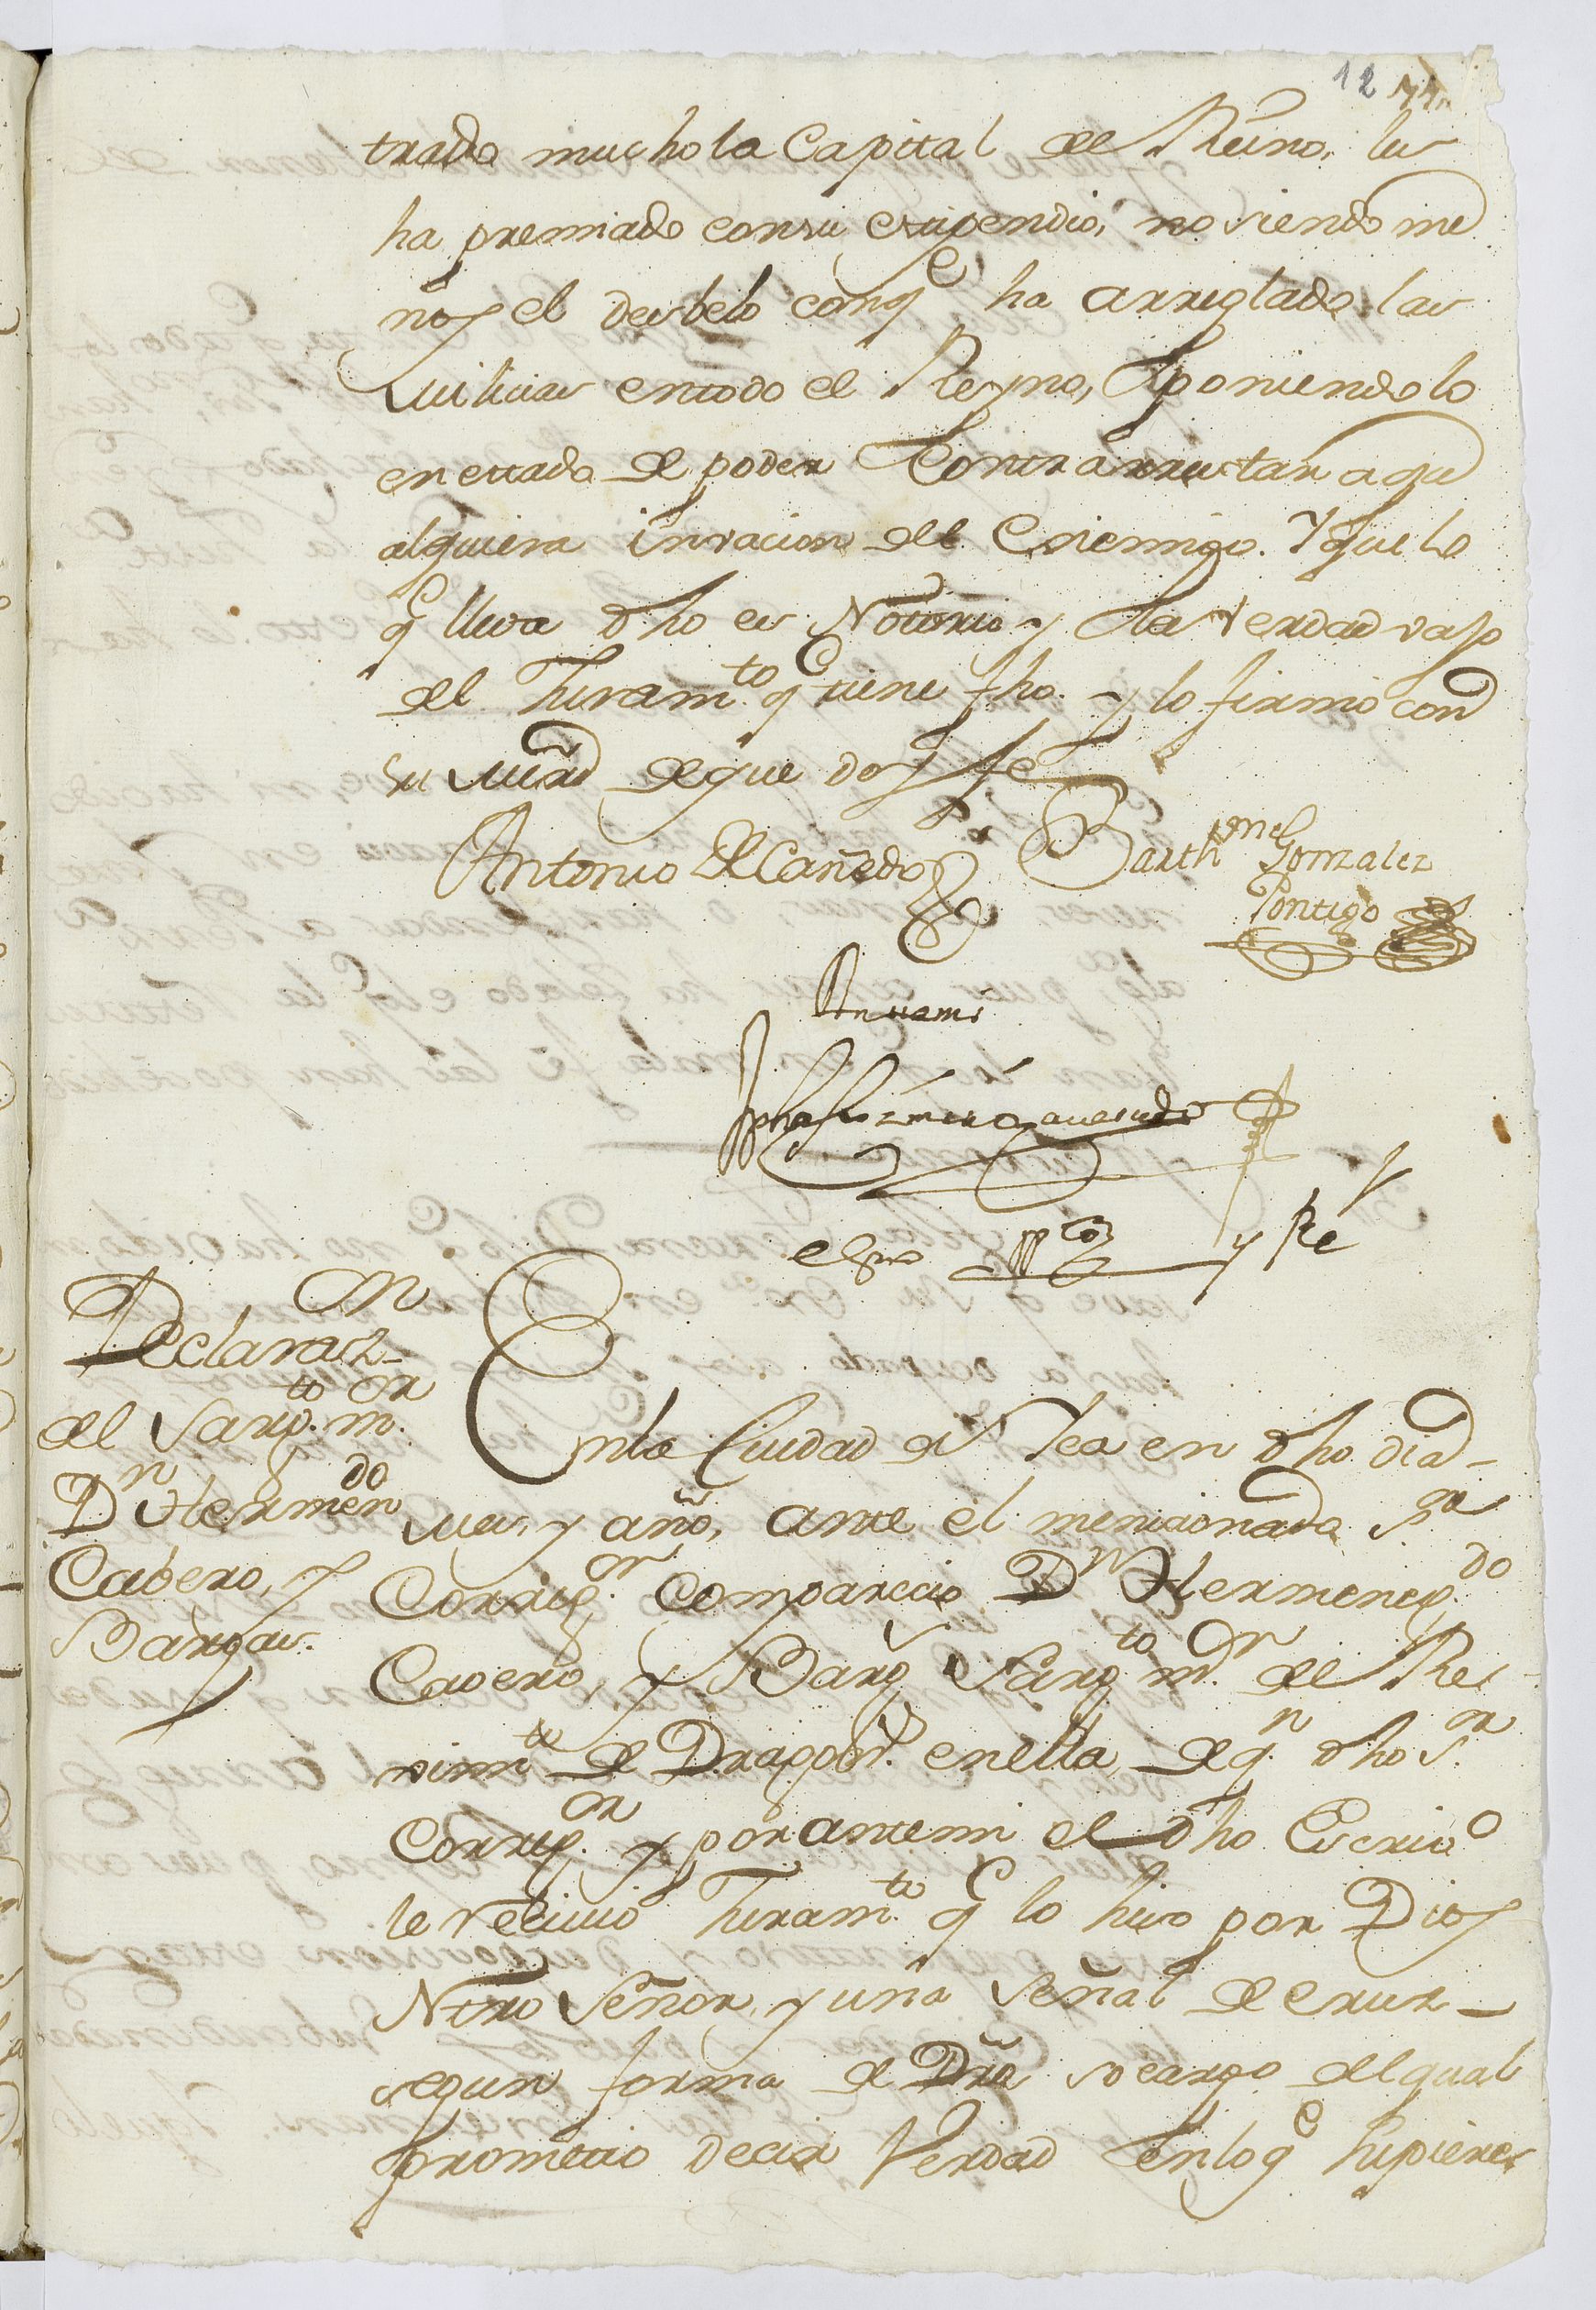 12
trado mucho la Capital de Reino, les
ha premiado con su estipendio, no siendo me
nos el desbelo con q.e ha arreglado las
Milicias en todo el Reyno, poniendolo
en estado de poder Contrarrestar a qu
alquiera invacion del Enemigo. Y que lo
q.e lleva dho es Notorio y la Verdad vajo
del Juram.to q.e tiene fho. y lo firmó con
su Mrd de que doy fe
Antonio de Cañedo
Barth.me Gonzalez
Pontigo
Ante mi
el Ess.no pp.co y Re
Declaraz.on
del Sarg.to m.or
D.n Hermen.do
Cabero, y
Bargas.
En la Ciudad de Yca en dho dia
mes, y año, ante el mencionado S.or
Correg.or comparecio D.n Hermeneg.do
Cavero, y Barg.s Sarg.to m.or de Re
gim.to de Dragon.s en ella, de q.n dho S.or
Correg.or y por ante mi el dho Escriv.o
le recivió Juram.to q.e lo hiso por Dios
Ntro Señor, y una Señal de cruz
segun forma de Dro so cargo del qual
prometio decir Verdad en lo q.e supiere